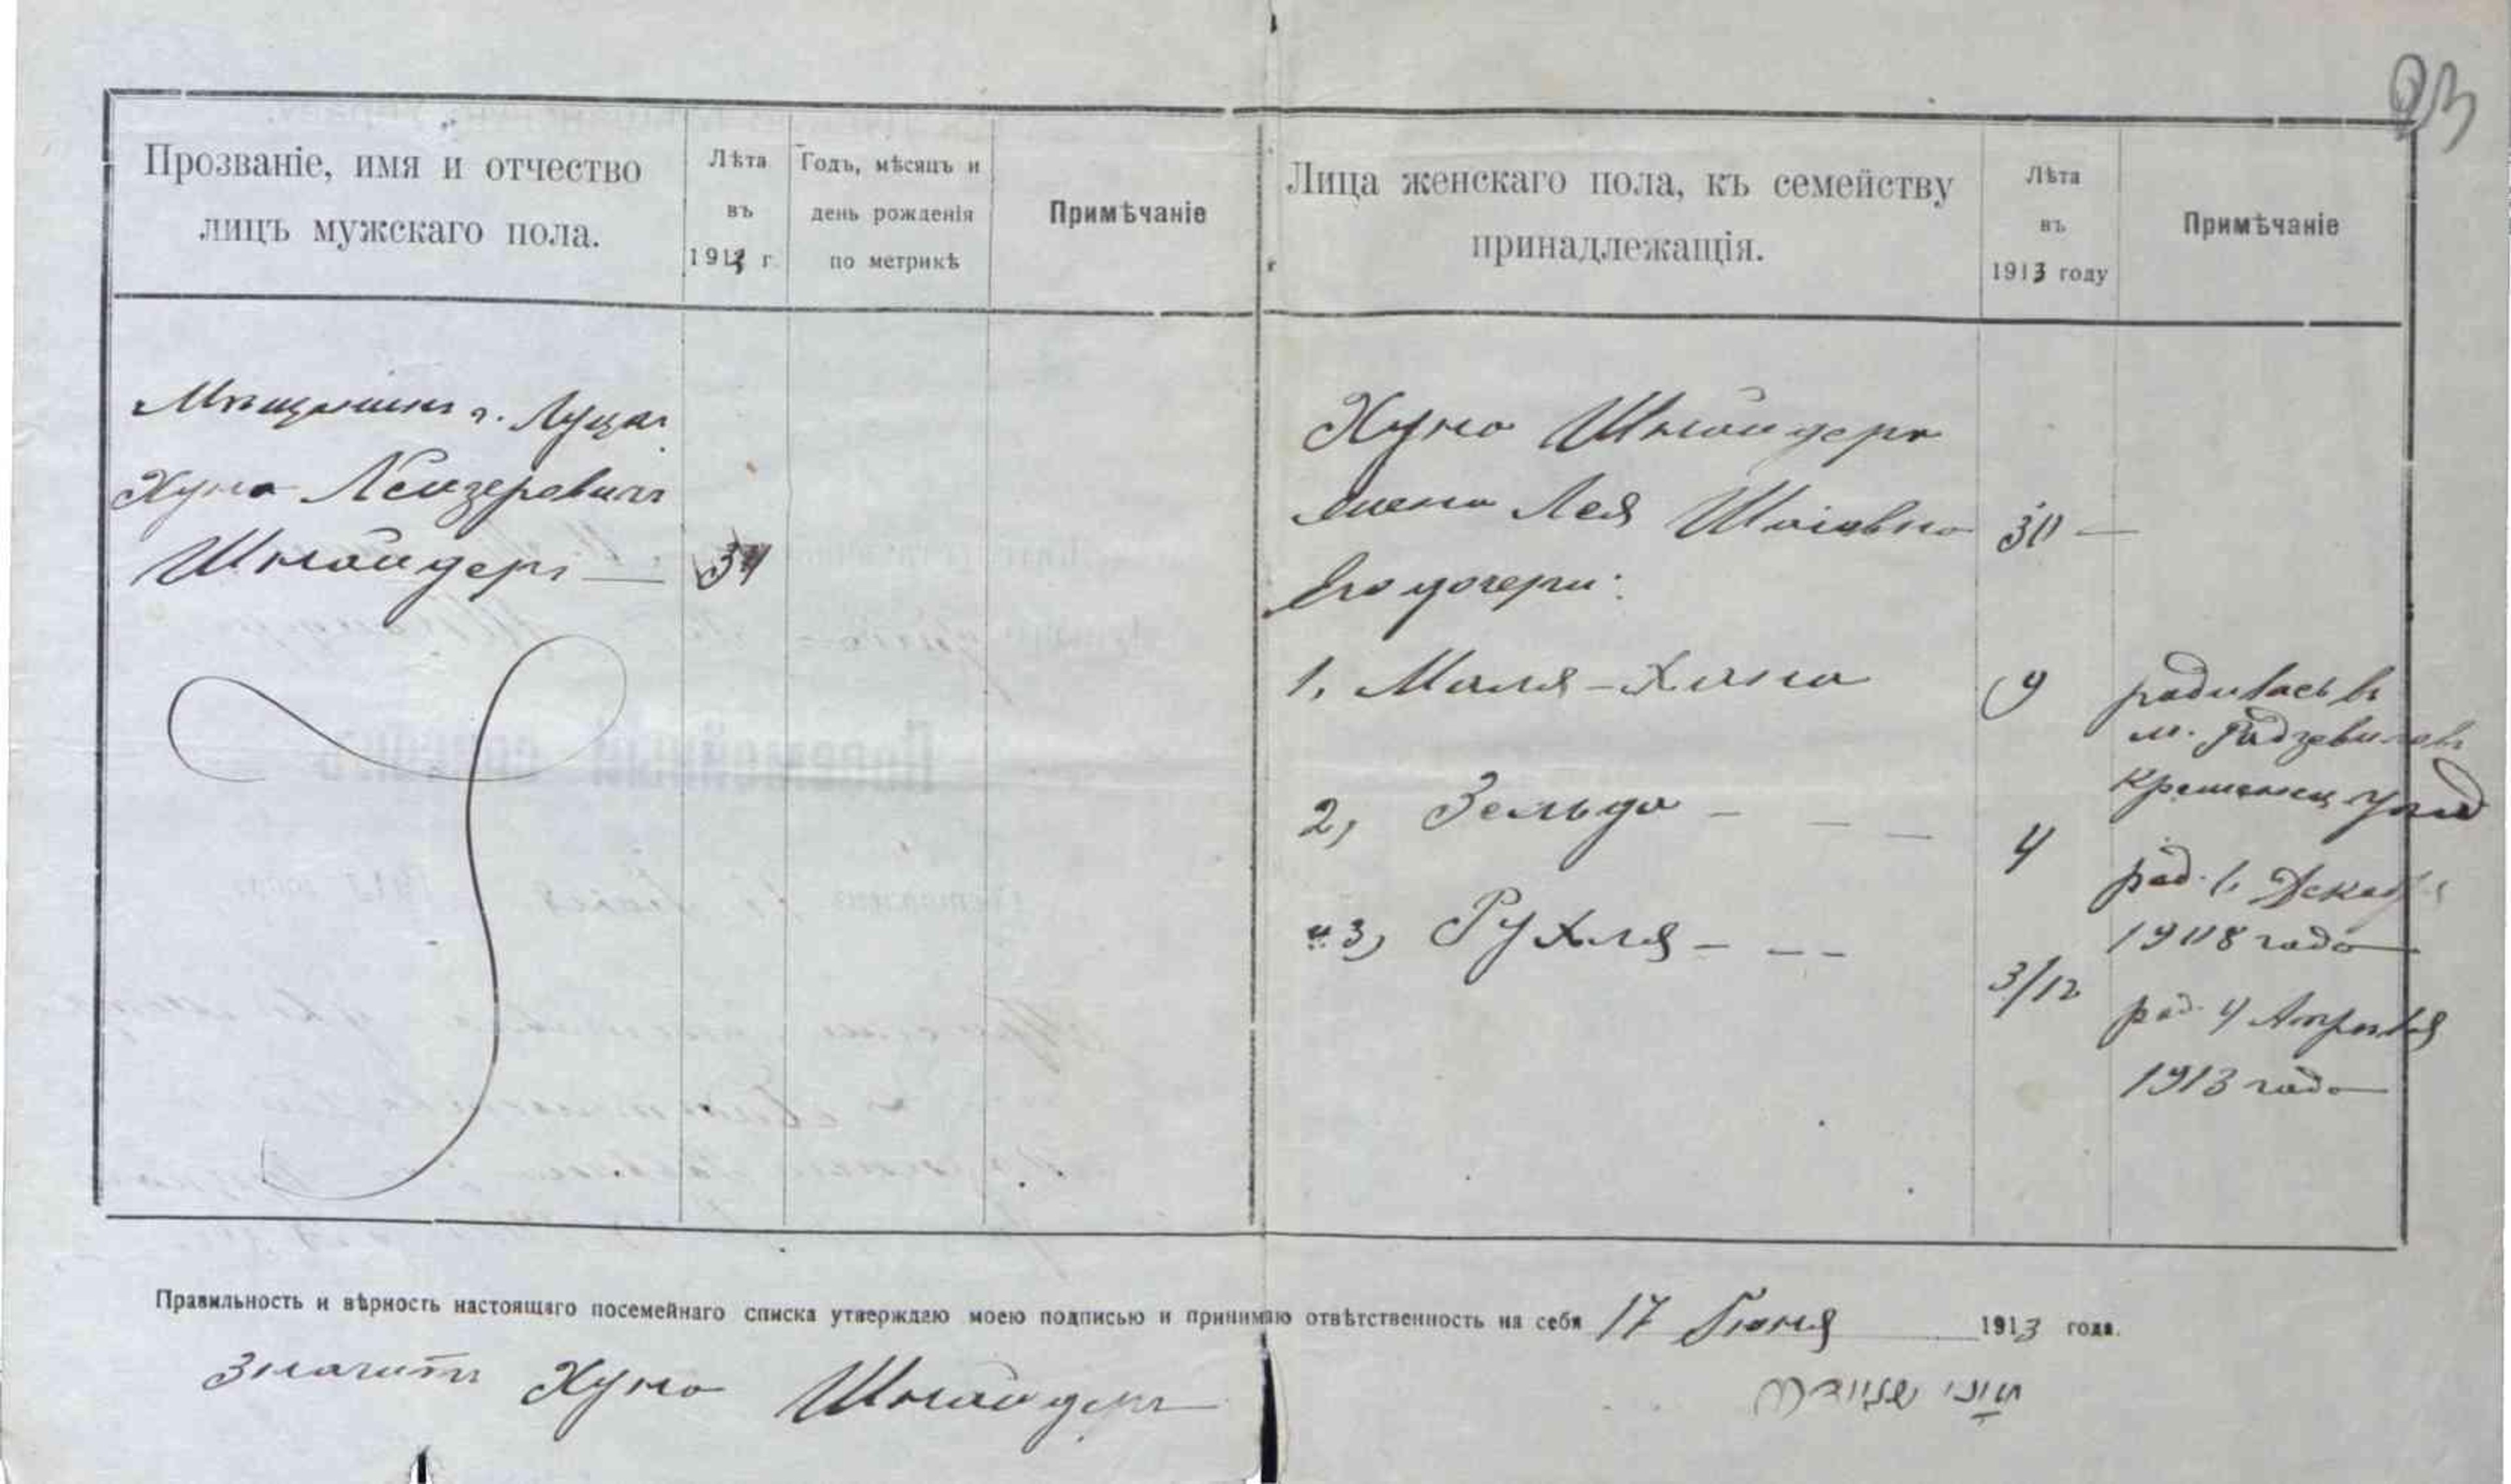 23
Прозваніе, имя и отчество
лицъ мужскаго пола.
Лѣта
въ
1913 г.
Годъ, мѣсяцъ и
день рожденія
по метрикѣ
Примѣчаніе
Мѣщанинъ г. Луцка
Хуна Лейзеровичъ
Шнайдеръ — 34
Лица женскаго пола, къ семейству
принадлежащія.
Лѣта
въ
1913 году
Примѣчаніе
Хуна Шнайдера
жена Лея Шаіовна 30 —
Его дочери:
1, Маля-Хана 9 радилась въ
м. Радзевиловъ
Кременец уѣзд
2, Зельда – – – 4 рад. 6 Декаб
1908 года
и 3, Рухля – – – 3/12 рад. 4 Апрѣля
1913 года
Правильность и вѣрность настоящаго посемейнаго списка утверждаю моею подписью и принимаю отвѣтственность на себя 17 Іюня 1913 года.
Значитъ Хуна Шнайдеръ
חונ׳ שניידר